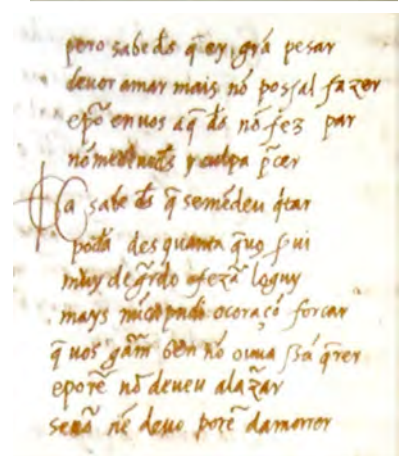 pero sabe d̃s q̃ ey grã pesar
deuor amar mais nõ possal fazer
epõ en uos aq̃ d̃s nõ fez par
nõ me ðuedes y culpa põer
Ca sabe d̃s q̃ semẽdeu q̃tar
des quanta q̃ uos fui
muy de grãdo o fezã loguy
mays nũca pudi o coraçõ forçar
q̃ uos gãm ben nõ ouuessa q̃rer
eporẽ nõ deueu alazãr
senõ nẽ deuo porẽ damorrer